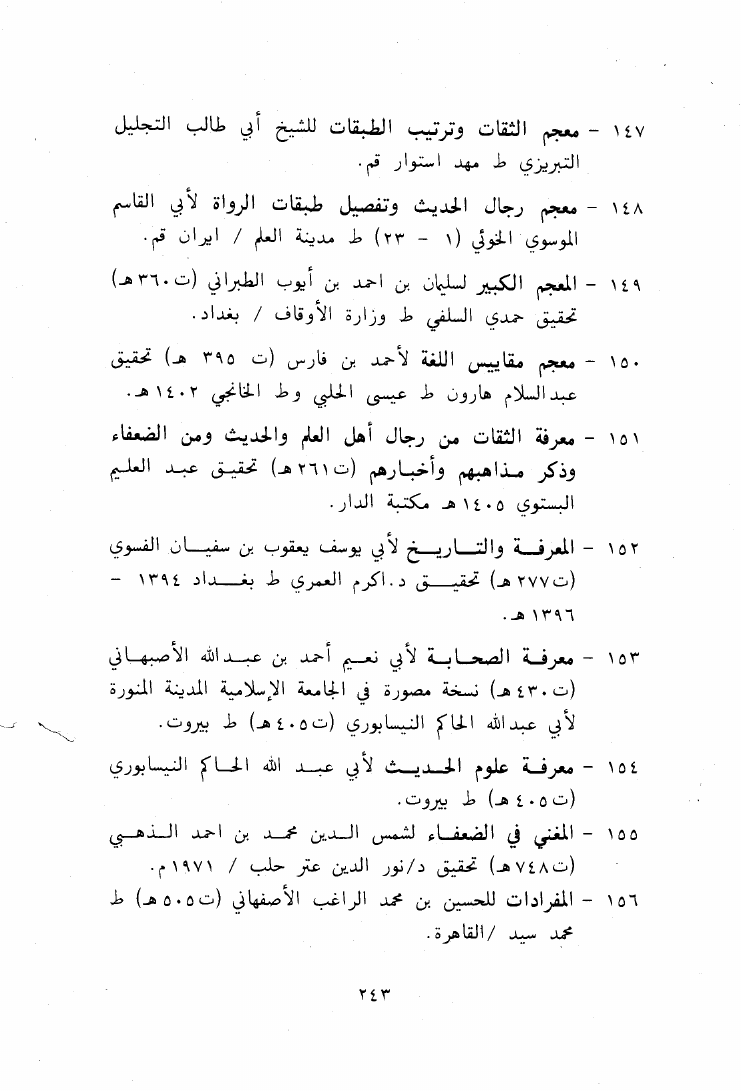 ١٤٧ - معجم الثقات وترتيب الطبقات للشيخ أبي طالب التجليل
التبريزي ط مهد استوار قم.
١٤٨ - معجم رجال الحديث وتفصيل طبقات الرواة لأبي القاسم
الموسوي الخوئي (١ - ٢٣) ط مدينة العلم / ايران قم.
١٤٩ - المعجم الكبير لسليمان بن احمد بن أيوب الطبراني (ت٣٦٠هـ)
تحقيق حمدي السلفي ط وزارة الأوقاف / بغداد.
١٥٠ - معجم مقاييس اللغة لأحمد بن فارس (ت ٣٩٥ هـ) تحقيق
عبدالسلام هارون ط عيسى الحلبي وط الخانجي ١٤٠٢هـ.
١٥١ - معرفة الثقات من رجال أهل العلم والحديث ومن الضعفاء
وذكر مذاهبهم وأخبارهم (ت٢٦١هـ) تحقيق عبد العليم
البستوي ١٤٠٥هـ مكتبة الدار.
١٥٢ - المعرفة والتاريخ لأبي يوسف يعقوب بن سفيان الفسوي
(ت٢٧٧هـ) تحقيق د.اكرم العمري ط بغداد ١٣٩٤ -
١٣٩٦هـ.
١٥٣ - معرفة الصحابة لأبي نعيم أحمد بن عبدالله الأصبهاني
(ت٤٣٠هـ) نسخة مصورة في الجامعة الإسلامية المدينة المنورة
لأبي عبدالله الحاكم النيسابوري (ت٤٠٥هـ) ط بيروت.
١٥٤ - معرفة علوم الحديث لأبي عبد الله الحاكم النيسابوري
(ت٤٠٥هـ) ط بيروت.
١٥٥ - المغني في الضعفاء لشمس الدين محمد بن احمد الذهبي
(ت٧٤٨هـ) تحقيق د/نور الدين عتر حلب / ١٩٧١م.
١٥٦ - المفرادات للحسين بن محمد الراغب الأصفهاني (ت٥٠٥هـ) ط
محمد سيد /القاهرة.
٢٤٣